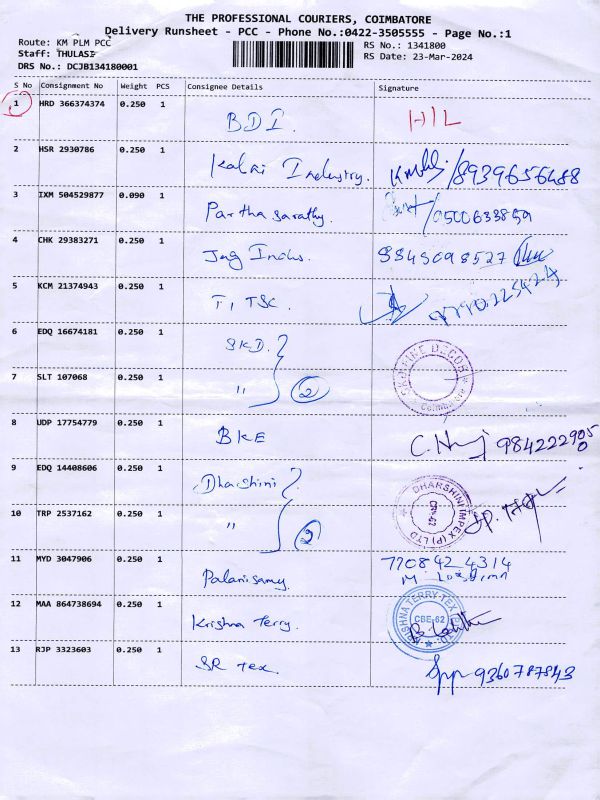 THE PROFESSIONAL COURIERS, COIMBATORE
Delivery Runsheet - PCC - Phone No.:0422-3505555 - Page No.:1
Route: KM PLM PCC
Staff: THULASI
DRS No.: DCJB134180001
RS No.: 1341800
RS Date: 23-Mar-2024
S No Consignment No Weight PCS Consignee Details Signature
1 HRD 366374374 0.250 1 BDI. HIL
2 HSR 2930786 0.250 1 Kalai Industry. /8939656488
3 IXM 504529877 0.090 1 Partha sarathy.
4 CHK 29383271 0.250 1 Jag Indus.
5 KCM 21374943 0.250 1 TI TSC.
6 EDQ 16674181 0.250 1 SKD.
7 SLT 107068 0.250 1 " 2
8 UDP 17754779 0.250 1 BKE
9 EDQ 14408606 0.250 1 Dharshini
DHARSHINI IMPEX (P) LTD
10 TRP 2537162 0.250 1 " 2
11 MYD 3047906 0.250 1 Palanisamy 7708424314
12 MAA 864738694 0.250 1 Krishna Terry.
KRISHNA TERRY TEX
CBE-62
13 RJP 3323603 0.250 1 SR Tex. 9360787843